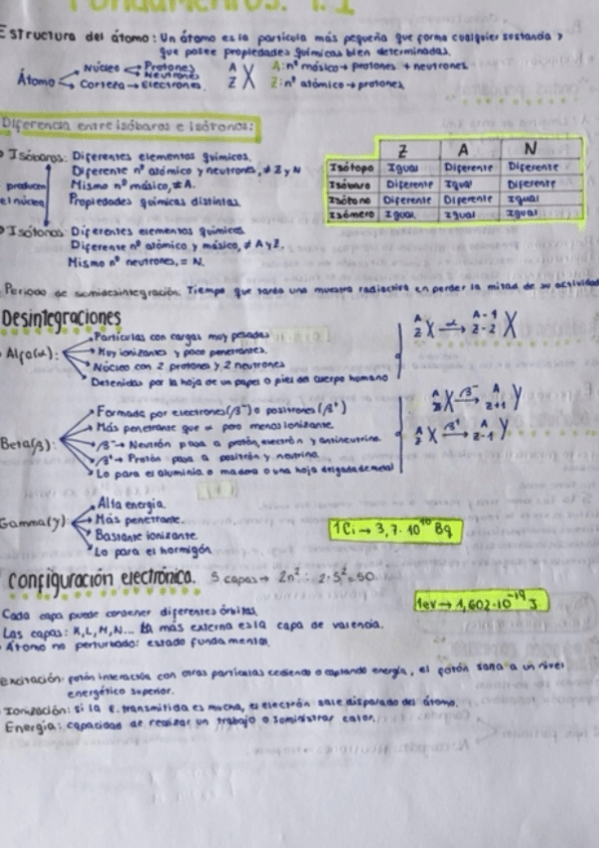 Fundamentos. T.1
Estructura del átomo: Un átomo es la partícula más pequeña que forma cualquier sustancia y
que posee propiedades químicas bien determinadas.
Átomo Núcleo Protones
Neutrones
Corteza → Electrones.
A
Z X
A: nº másico → protones + neutrones
Z: nº atómico → protones.
Diferencia entre isóbaros e isótonos:
Isóbaros: Diferentes elementos químicos.
Diferente nº atómico y neutrones, ≠ Z y N
Mismo nº másico, ≠ A.
Propiedades químicas distintas.
producen
el núcleo
Isótonos: Diferentes elementos químicos
Diferente nº atómico y másico, ≠ A y Z.
Mismo nº neutrones, = N.
Z A N
Isótopo Igual Diferente Diferente
Isóbaro Diferente Igual Diferente
Isótono Diferente Diferente Igual
Isómero Igual Igual Igual
Periodo de semidesintegración: Tiempo que tarda una muestra radiactiva en perder la mitad de su actividad
Desintegraciones
Alfa(α): Partículas con cargas muy pesadas
Muy ionizantes y poco penetrantes.
Núcleo con 2 protones y 2 neutrones
Detenidas por la hoja de un papel o piel del cuerpo humano
A
Z X α→ A-4
Z-2 X
Beta(β): Formada por electrones(β⁻) o positrones(β⁺)
Más penetrante que α pero menos ionizante.
β⁻ → Neutrón pasa a protón, electrón y antineutrino.
β⁺ → Protón pasa a positrón y neutrino.
Lo para el aluminio o madera o una hoja delgada de metal
A
Z X β⁻→ A
Z+1 Y
A
Z X β⁺→ A
Z-1 Y
Gamma(γ) Alta energía.
Más penetrante.
Bastante ionizante.
Lo para el hormigón
1Ci → 3,7·10¹⁰ Bq
Configuración electrónica. 5 capas → 2n²: 2·5²=50
1eV → 1,602·10⁻¹⁹ J
Cada capa puede contener diferentes órbitas
Las capas: K, L, M, N... La más externa es la capa de valencia.
Átomo no perturbado: estado fundamental.
Excitación: fotón interacción con otras partículas cediendo o captando energía, el fotón a un nivel
energético superior.
Ionización: si la E. transmitida es mucha, el electrón sale disparado del átomo.
Energía: capacidad de realizar un trabajo o suministrar calor.